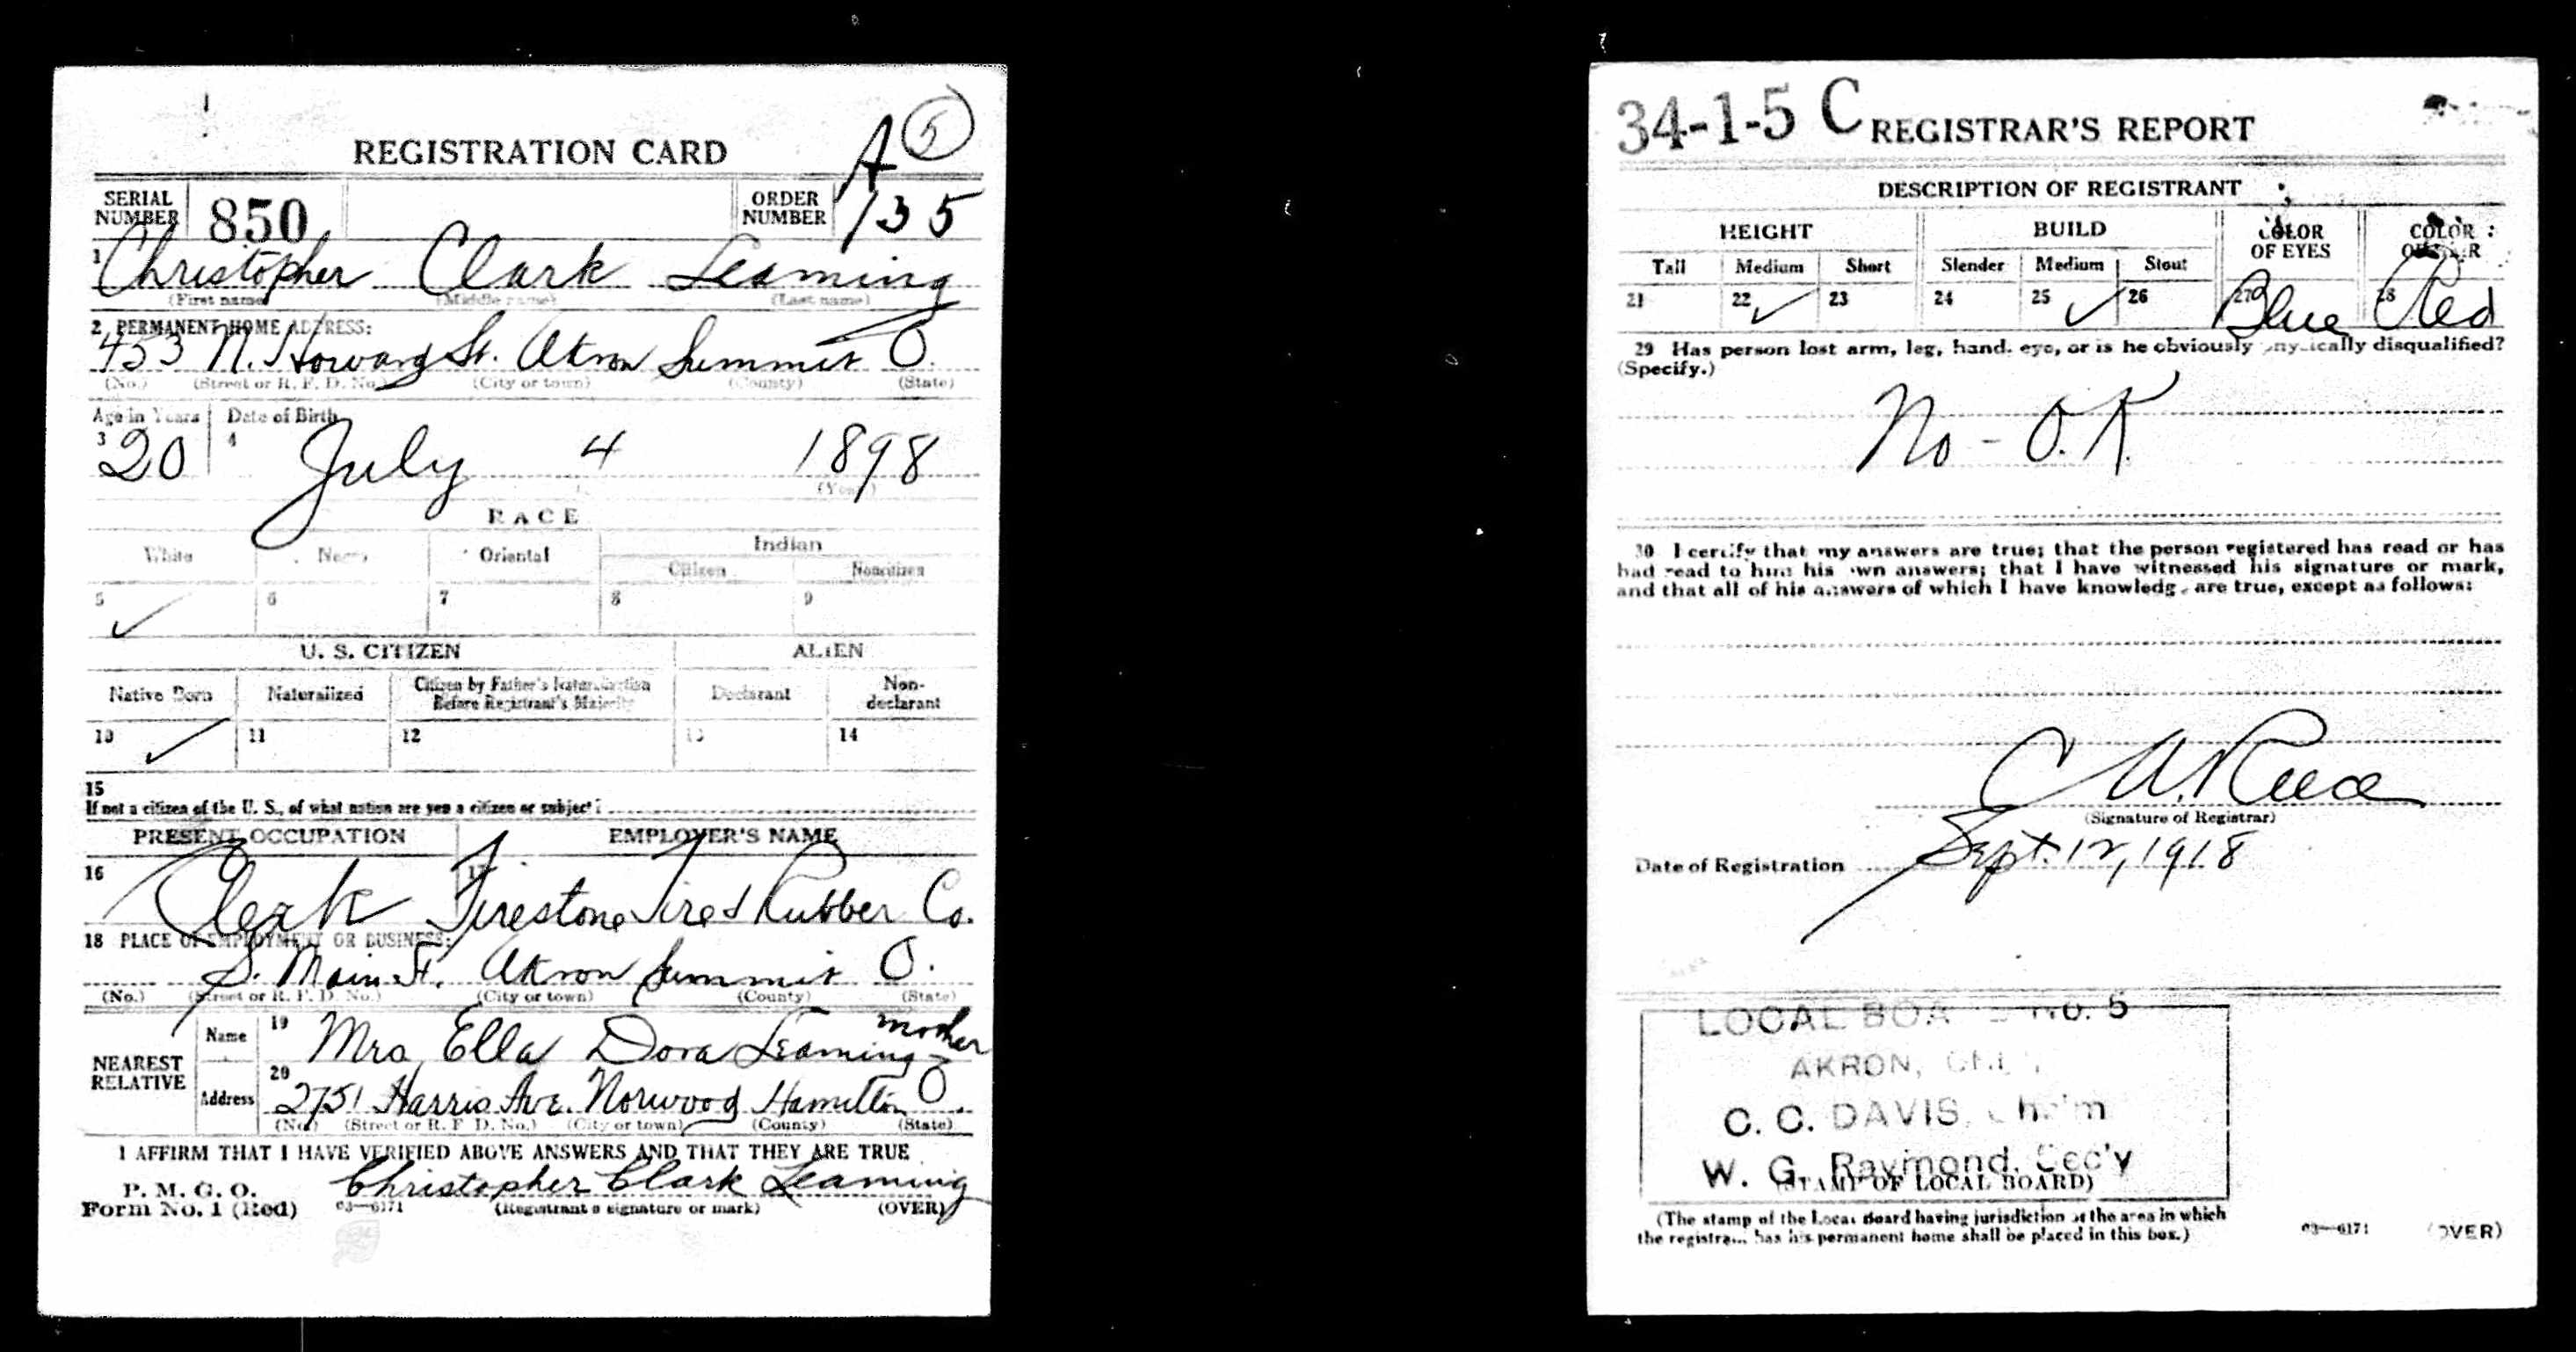 REGISTRATION CARD
A 5
SERIAL NUMBER 850 ORDER NUMBER 135
1 Christopher Clark Leaming
(First name) (Middle name) (Last name)
2 PERMANENT HOME ADDRESS:
453 N. Howard St. Akron Summit O.
(No.) (Street or R. F. D. No.) (City or town) (County) (State)
Age in Years Date of Birth
3 20 4 July 4 1898
(Year)
RACE
White Negro Oriental Indian
Citizen Noncitizen
5 ✓ 6 7 8 9
U. S. CITIZEN ALIEN
Native Born Naturalized Citizen by Father's Naturalization Before Registrant's Majority Declarant Non-declarant
10 ✓ 11 12 13 14
15
If not a citizen of the U. S., of what nation are you a citizen or subject?
PRESENT OCCUPATION EMPLOYER'S NAME
16 Clerk 17 Firestone Tire & Rubber Co.
18 PLACE OF EMPLOYMENT OR BUSINESS:
S. Main St. Akron Summit O.
(No.) (Street or R. F. D. No.) (City or town) (County) (State)
NEAREST RELATIVE
Name 19 Mrs Ella Dora Leaming mother
Address 20 2751 Harris Ave. Norwood Hamilton O.
(No.) (Street or R. F. D. No.) (City or town) (County) (State)
I AFFIRM THAT I HAVE VERIFIED ABOVE ANSWERS AND THAT THEY ARE TRUE
P. M. G. O.
Form No. 1 (Red) Christopher Clark Leaming
03—6171 (Registrant's signature or mark) (OVER)
34-1-5 C REGISTRAR'S REPORT
DESCRIPTION OF REGISTRANT
HEIGHT BUILD COLOR OF EYES COLOR OF HAIR
Tall Medium Short Slender Medium Stout
21 22 ✓ 23 24 25 ✓ 26 27 Blue 28 Red
29 Has person lost arm, leg, hand, eye, or is he obviously physically disqualified?
(Specify.)
No - O.K.
30 I certify that my answers are true; that the person registered has read or has
had read to him his own answers; that I have witnessed his signature or mark,
and that all of his answers of which I have knowledge are true, except as follows:
C A. Reece
(Signature of Registrar)
Date of Registration Sept. 12, 1918
LOCAL BOARD No. 5
AKRON, OHIO
C. C. DAVIS, Ch'm
W. G. Raymond, Sec'y
(STAMP OF LOCAL BOARD)
(The stamp of the Local Board having jurisdiction of the area in which
the registrant has his permanent home shall be placed in this box.)
03—6171 (OVER)